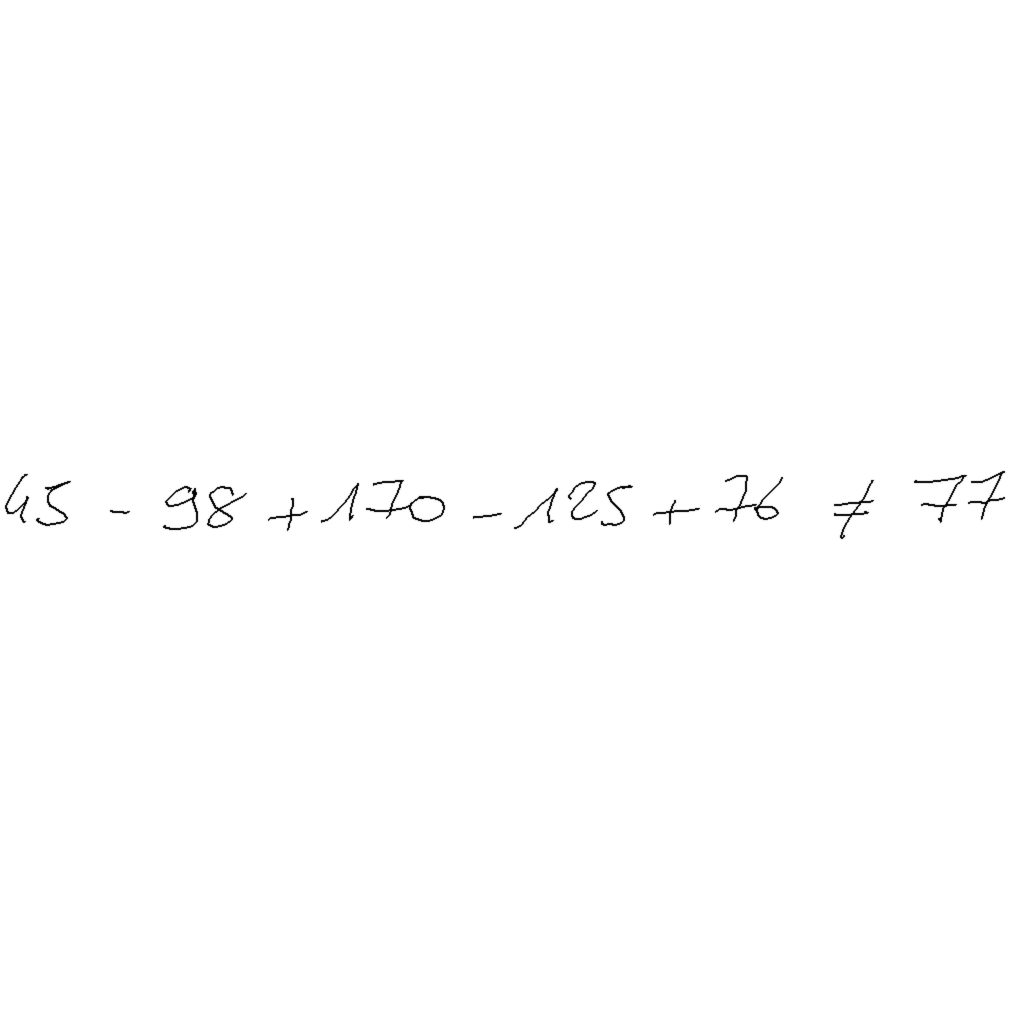 45 - 98 + 170 - 125 + 76 ≠ 77